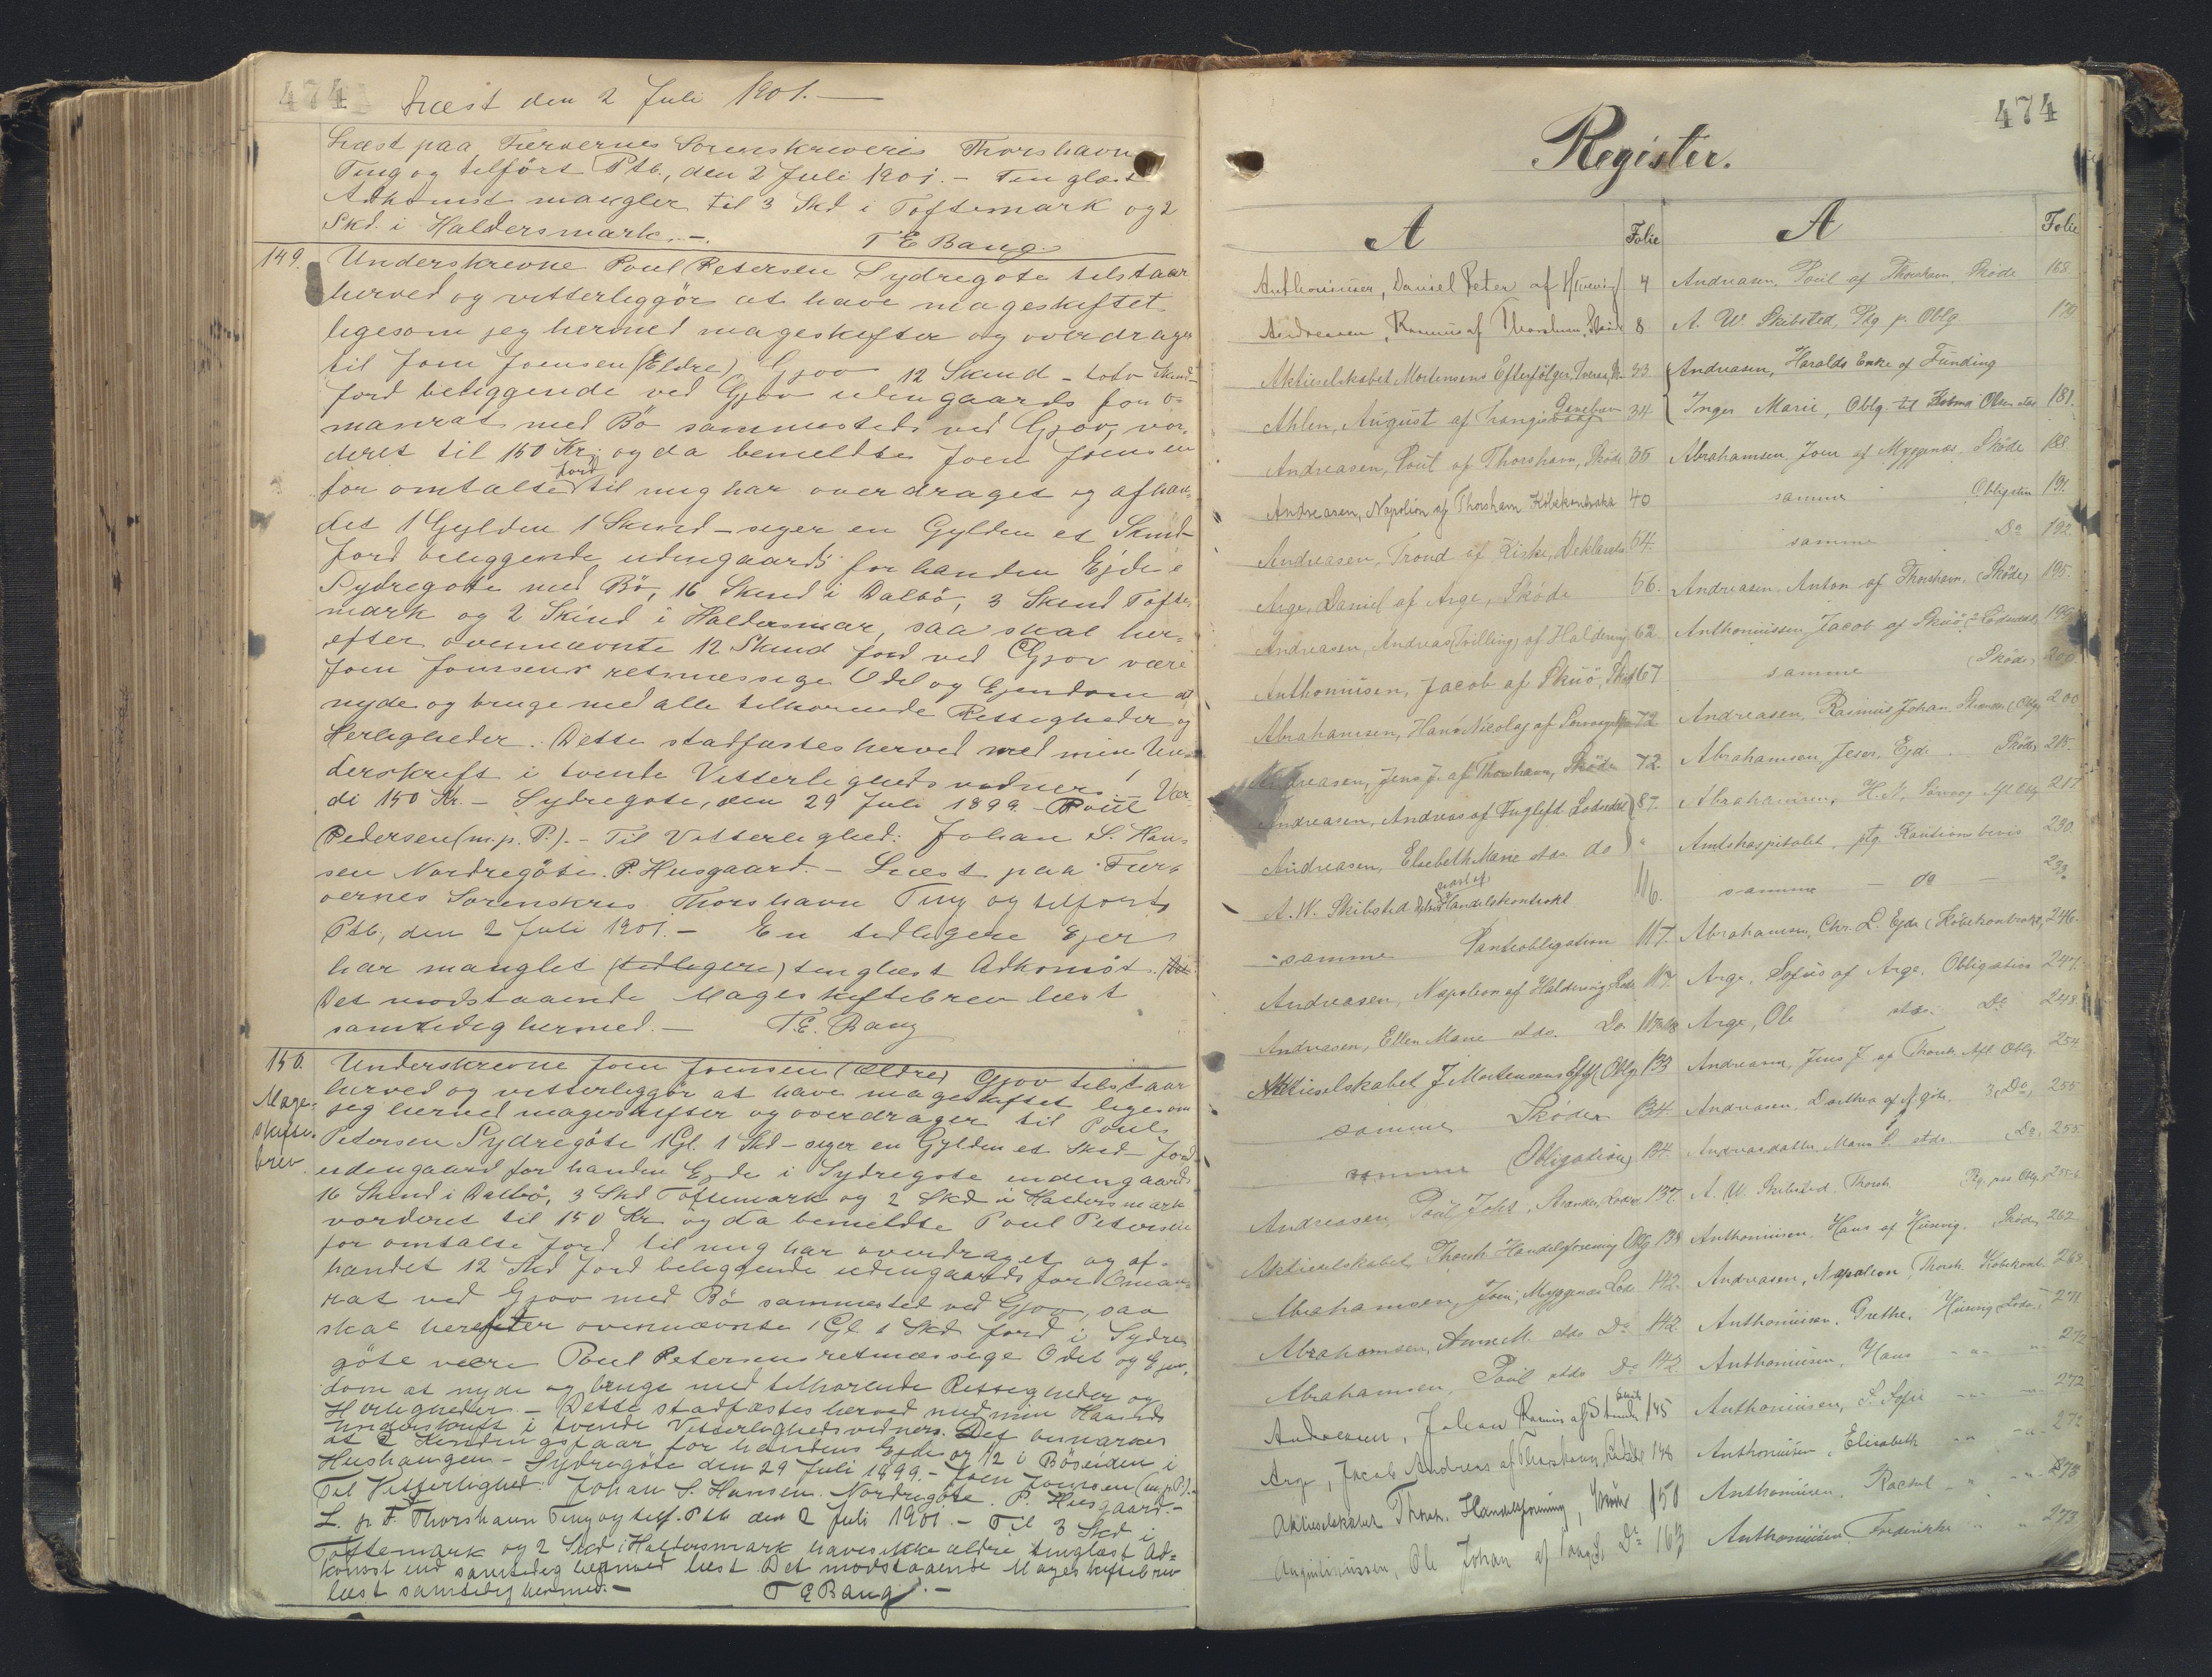 474
Læst den 2 Juli 1901.—
Læst paa Færøernes Sorenskriveri Thorshavn
Ting og tilført Ptb., den 2 Juli 1901.— Tinglæst
Adkomst mangler til 3 Skd i Toftemark og 2
Skd. i Haldersmark.—.
T E Bang
149.
Underskrevne Poul Petersen Sydregøte tilstaar
herved og vitterliggør at have mageskiftet
ligesom jeg herved mageskifter og overdrager
til Joen Joensen (Eldre) Gjov 12 Skind – tolv Skind –
Jord beliggende ved Gjov udengaards for o-
manrat med Bø sammesteds ved Gjov, vur-
deret til 150 Kr. og da bemeldte Joen Joensen
for omtalte Jord til mig har overdraget og afhæn-
det 1 Gylden 1 Skind – siger en Gylden et Skind –
Jord beliggende udengaards for handen Ejde i
Sydregøte med Bø, 16 Skind i Dalbø, 3 Skind Tofte-
mark og 2 Skind i Haldersmar, saa skal her-
efter ovennævnte 12 Skind Jord ved Gjov være
Joen Joensens retmæssige Odel og Ejendom at
nyde og bruge med alle tilhørende Rettigheder og
Herligheder. Dette stadfæstes herved med min Un-
derskrift i tvende Vitterlighedsvidners.— Vær
di 150 Kr.– Sydregøte, den 29 Juli 1899.– Poul
Pedersen (m.p. P.).– Til Vitterlighed: Johan S. Han-
sen Nordregøte. P. Husgaard.– Læst paa Fær-
øernes Sorenskris Thorshavn Ting og tilført
Ptb., den 2 Juli 1901.– En tidligere Ejer
har manglet (tidligere) tinglæst Adkomst.
Det modstaaende Mageskiftebrev læst
samtidig hermed.— T.E. Bang
150.
Mage-
skifte-
brev
Underskrevne Joen Joensen (ældre) Gjov tilstaar
herved og vitterliggør at have mageskiftet ligesom
jeg herved mageskifter og overdrager til Poul
Petersen Sydregøte 1 Gl. 1 Skd – siger en Gylden et Skd – Jord
udengaard for handen Ejde i Sydregøte indengaards
16 Skind i Dalbø, 3 Skd Toftemark og 2 Skd i Haldersmark
vurderet til 150 Kr og da bemeldte Poul Petersen
for omtalte Jord til mig har overdraget og af-
hændet 12 Skd Jord beliggende udengaards for Oman-
rat ved Gjov med Bø sammested ved Gjov, saa
skal herefter ovennævnte 1 Gl. 1 Skd Jord i Sydre-
gøte være Poul Petersens retmæssige Odel og Ejen-
dom at nyde og bruge med tilhørende Rettigheder og
Herligheder.– Dette stadfæstes herved med min Haands
Underskrift i tvende Vitterlighedsvidners. Det bemærkes
at 2 for handens Ejde og 12 i Bøsiden i
Hushaugen – Sydregøte den 29 Juli 1899.– Joen Joensen (m.p. P.).–
Til Vitterlighed: Johan S. Hansen. Nordregøte. P. Husgaard.–
L. p. F. Thorshavn Ting og tilf. Ptb. den 2 Juli 1901.– Til 3 Skd i
Toftemark og 2 Skd i Haldersmark haves ikke ældre tinglæst Ad-
komst end samtidig hermed læst. Det modstaaende Mageskiftebrev
læst samtidig hermed.– T E Bang.–
474
Register.
A Folie
Anthoniusen, Daniel Peter af Husevig 4
Andreasen, Rasmus af Thorshavn, Skøde 8
Aktieselskabet Mortensens Efterfølger, Tveraa 33
Ahlen, August af Trangisvaag 34
Andreasen, Poul af Thorshavn, Skøde 35
Andreasen, Napolion af Thorshavn Købekontrakt 40
Andreasen, Trond af Kirke, Deklarat. 54.
Arge, Daniel af Arge, Skøde 56.
Andreasen, Andreas (Tvilling) af Haldersvig 62.
Anthoniusen, Jacob af Skuø, Skøde 67
Abrahamsen, Hans Nicolaj af 72
Andreasen, Jens J. af Thorshavn, Skøde 72
Andreasen, Andreas af Fuglefd. Lodseddel 87.
Andreasen, Elsebeth Marie stds. do "
A. W. Skibsted Handelskontrakt 116.
" samme Panteobligation 117.
Andreasen, Napoleon af Haldersvig 117.
Andreasen, Ellen Marie stds. Do 117
Aktieselskabet J Mortensens Eftf Oblg. 133
samme Skøder 134
samme Obligation 134.
Andreasen, Poul Johs, Strander, 137.
Aktieselskabet Thorsh Handelsforening Oblg 138
Abrahamsen, Joen, Myggenæs 142.
Abrahamsen, Anne M. stds Do 142
Abrahamsen, Poul stds Do 142
Andreasen, Johan Rasmus af 145
Arge, Jacob Andreas af Thorshavn, 148
Aktieselskabet Thorsh. Handelsforening, 150
Augustinussen, Ole Johan af Do 163
A Folie
Andreasen, Poul af Thorshavn, Skøde 168.
A. W. Skibsted, Ptg p. Oblg. 179.
Andreasen, Haralds Enke af Funding
Inger Marie, Oblg. til Olsen stds 181.
Abrahamsen Joen af Myggenæs, Skøde 188
samme Obligation 191.
samme Do 192
Andreasen, Anton af Thorshavn, (Skøde) 195.
Anthoniussen Jacob af Skuø, Lodseddel 199
samme (Skøde) 200.
Andreasen, Rasmus Johan Strander (Oblg. 200
Abrahamsen Jesper, Ejde. Skøde 215.
Abrahamsen, H. N. Sørvaag Afl Oblg 217
Amtshospitalet, ptg. Kautionsbevis 230
samme — do — 233.
Abrahamsen, Chr. L. Ejde (Købekontrakt) 246.
Arge, Sofus af Arge. Obligation 247.
Arge, Ole stds. Do 248.
Andreasen, Jens J. af Thorsh. Afl Oblg. 254.
Andreasen, Dorthea af N gøte. Do 255
Andreasdatter, Maren S. stds. Do. 255
A. W. Skibsted. Thorsh Ptg. paa Oblg 255
Anthoniusen Hans af Husevig. Skøde 262.
Andreasen, Napoleon, Thorsh. Købekont. 268
Anthoniusen, Grethe, Husevig Lods. 271
Anthoniusen, Hans " 272
Anthoniusen, S. Sofie " 272
Anthoniusen, Elisabeth " 272
Anthoniusen, Rachel " 273
Anthoniusen Frederikke " 273